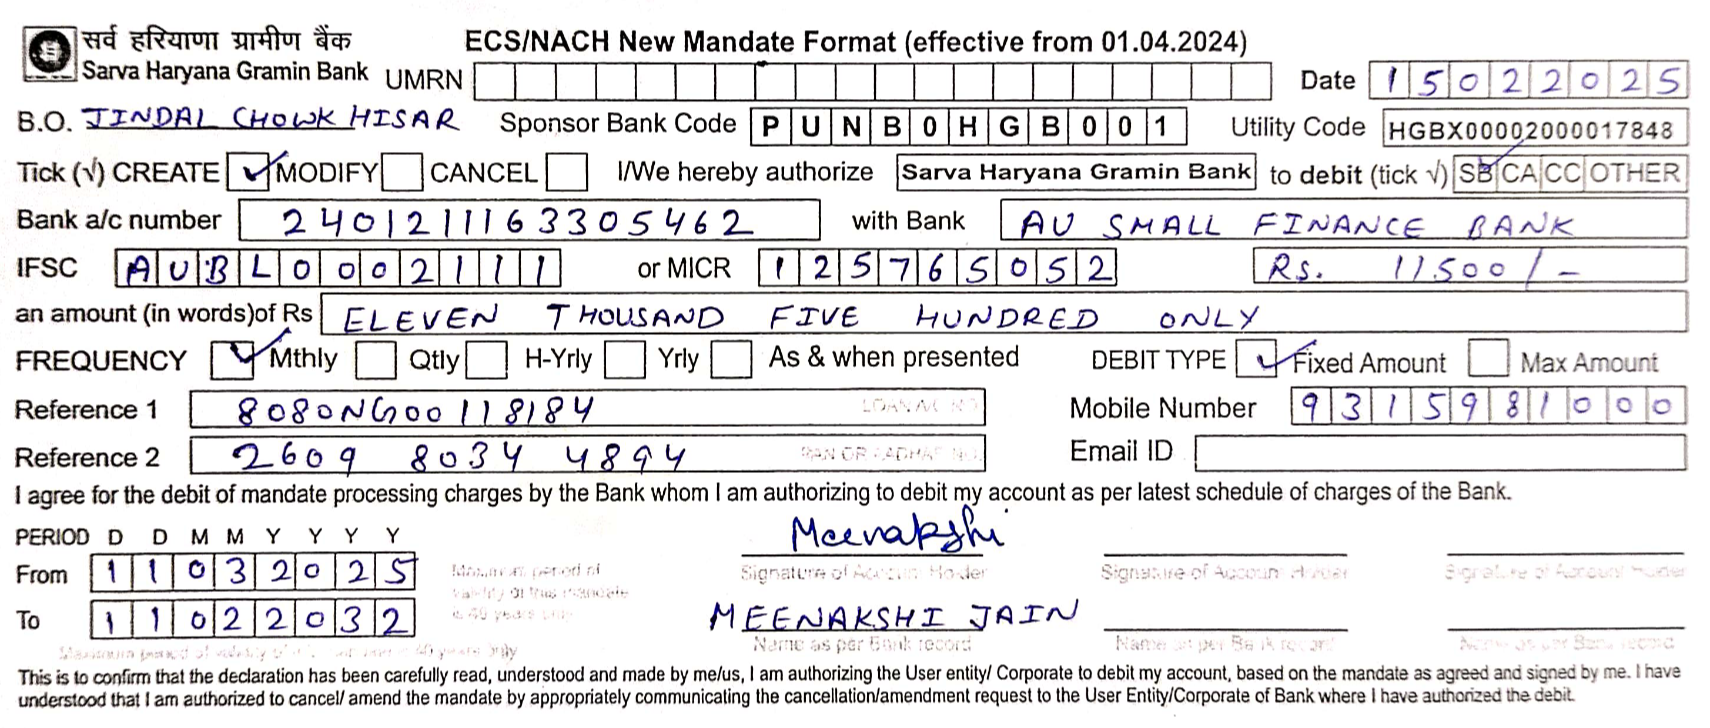 सर्व हरियाणा ग्रामीण बैंक
Sarva Haryana Gramin Bank
ECS/NACH New Mandate Format (effective from 01.04.2024)
UMRN Date 15022025
B.O. JINDAL CHOWK HISAR Sponsor Bank Code PUNB0HGB001 Utility Code HGBX00002000017848
Tick (√) CREATE ✓ MODIFY CANCEL I/We hereby authorize Sarva Haryana Gramin Bank to debit (tick √) SB ✓ CA CC OTHER
Bank a/c number 2401211163305462 with Bank AU SMALL FINANCE BANK
IFSC AUBL0002111 or MICR 125765052 Rs. 11500/-
an amount (in words)of Rs ELEVEN THOUSAND FIVE HUNDRED ONLY
FREQUENCY ✓ Mthly Qtly H-Yrly Yrly As & when presented DEBIT TYPE ✓ Fixed Amount Max Amount
Reference 1 8080NG00118184 LOAN A/C NO Mobile Number 9315981000
Reference 2 2609 8034 4894 PAN OR AADHAR NO. Email ID
I agree for the debit of mandate processing charges by the Bank whom I am authorizing to debit my account as per latest schedule of charges of the Bank.
PERIOD D D M M Y Y Y Y Meenakshi
From 11032025 Maximum period of validity of this mandate is 40 years only Signature of Account Holder Signature of Account Holder Signature of Account Holder
To 11022032 MEENAKSHI JAIN
Maximum period of validity of 40 years only Name as per Bank record Name as per Bank record Name as per Bank record
This is to confirm that the declaration has been carefully read, understood and made by me/us, I am authorizing the User entity/ Corporate to debit my account, based on the mandate as agreed and signed by me. I have
understood that I am authorized to cancel/ amend the mandate by appropriately communicating the cancellation/amendment request to the User Entity/Corporate of Bank where I have authorized the debit.